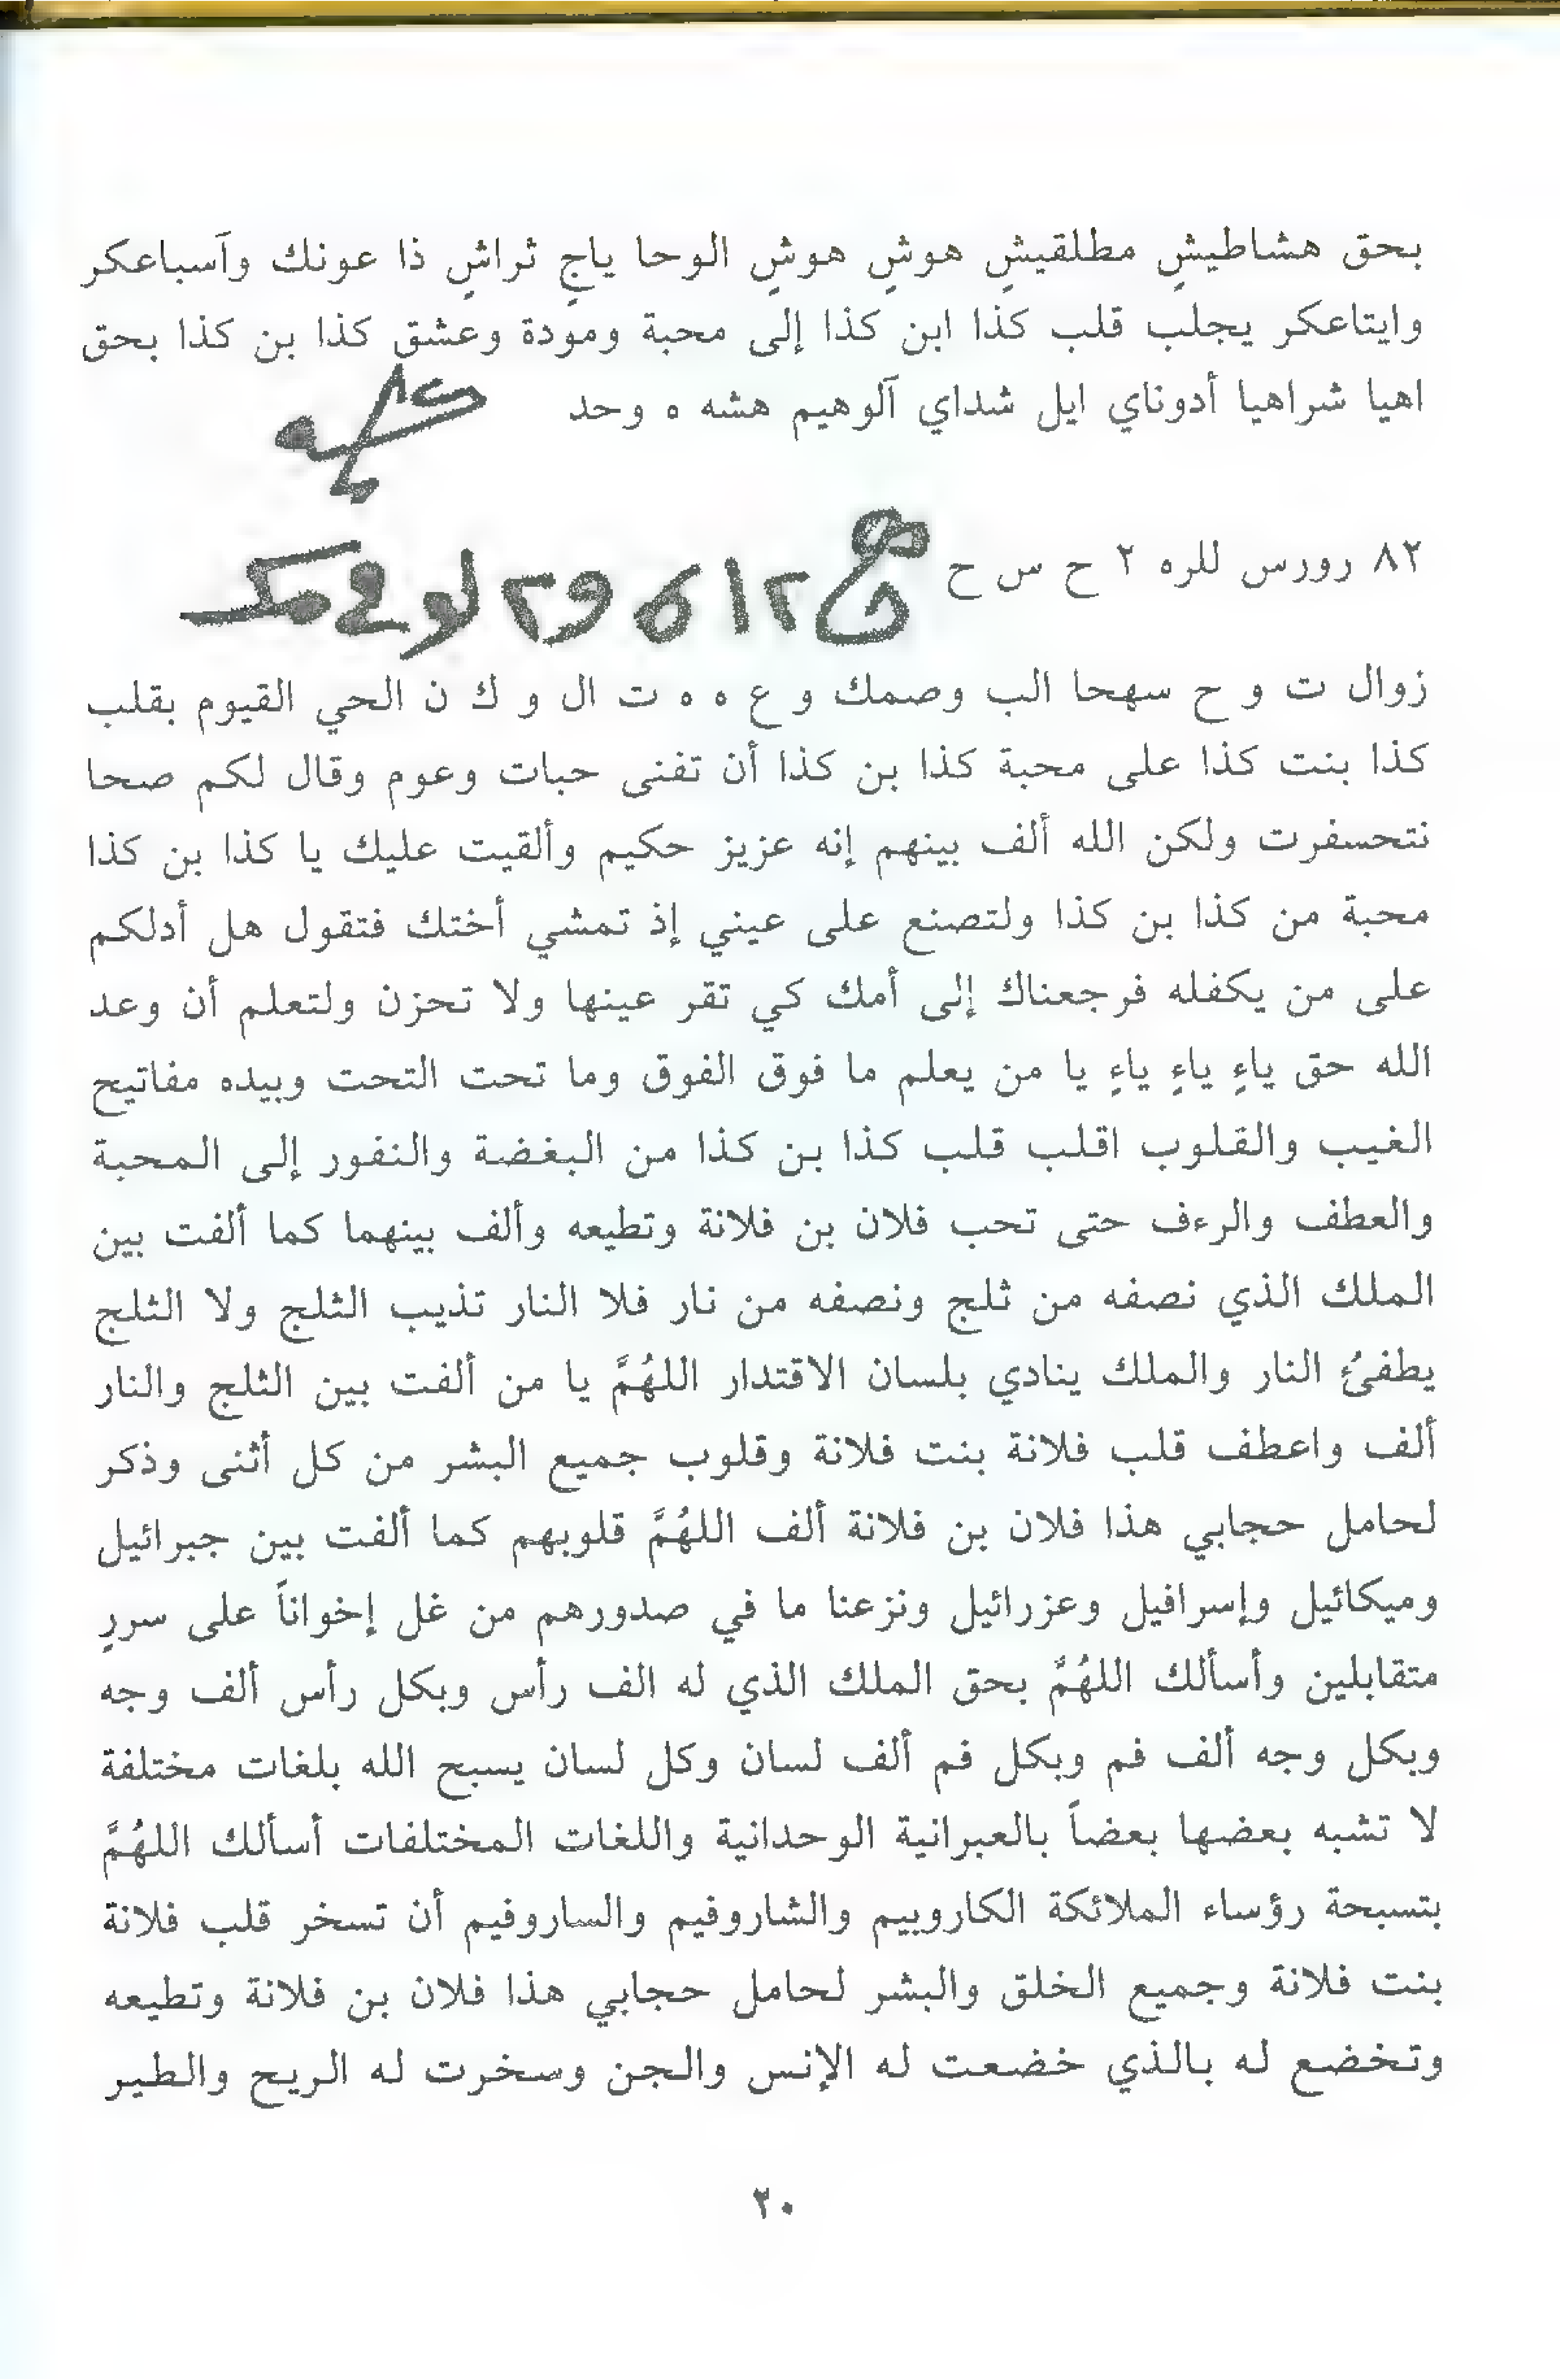 بحق هشاطيشٍ مطلقيشٍ هوشٍ هوشٍ الوحا ياجٍ ثراشٍ ذا عونك وآسباعكر
وايتاعكر يجلب قلب كذا ابن كذا إلى محبة ومودة وعشق كذا بن كذا بحق
اهيا شراهيا أدوناي ايل شداي آلوهيم هشه ه وحد
٨٢ رورس للره ٢ ح س ح
زوال ت و ح سهحا الب وصمك و ع ه ه ت ال و ك ن الحي القيوم بقلب
كذا بنت كذا على محبة كذا بن كذا أن تفنى حبات وعوم وقال لكم صحا
نتحسفرت ولكن الله ألف بينهم إنه عزيز حكيم وألقيت عليك يا كذا بن كذا
محبة من كذا بن كذا ولتصنع على عيني إذ تمشي أختك فتقول هل أدلكم
على من يكفله فرجعناك إلى أمك كي تقر عينها ولا تحزن ولتعلم أن وعد
الله حق ياءٍ ياءٍ ياءٍ يا من يعلم ما فوق الفوق وما تحت التحت وبيده مفاتيح
الغيب والقلوب اقلب قلب كذا بن كذا من البغضة والنفور إلى المحبة
والعطف والرءف حتى تحب فلان بن فلانة وتطيعه وألف بينهما كما ألفت بين
الملك الذي نصفه من ثلج ونصفه من نار فلا النار تذيب الثلج ولا الثلج
يطفئُ النار والملك ينادي بلسان الاقتدار اللهُمَّ يا من ألفت بين الثلج والنار
ألف واعطف قلب فلانة بنت فلانة وقلوب جميع البشر من كل أثنى وذكر
لحامل حجابي هذا فلان بن فلانة ألف اللهُمَّ قلوبهم كما ألفت بين جبرائيل
وميكائيل وإسرافيل وعزرائيل ونزعنا ما في صدورهم من غل إخواناً على سررٍ
متقابلين وأسألك اللهُمَّ بحق الملك الذي له الف رأس وبكل رأس ألف وجه
وبكل وجه ألف فم وبكل فم ألف لسان وكل لسان يسبح الله بلغات مختلفة
لا تشبه بعضها بعضاً بالعبرانية الوحدانية واللغات المختلفات أسألك اللهُمَّ
بتسبحة رؤساء الملائكة الكاروبيم والشاروفيم والساروفيم أن تسخر قلب فلانة
بنت فلانة وجميع الخلق والبشر لحامل حجابي هذا فلان بن فلانة وتطيعه
وتخضع له بالذي خضعت له الإنس والجن وسخرت له الريح والطير
٢٠